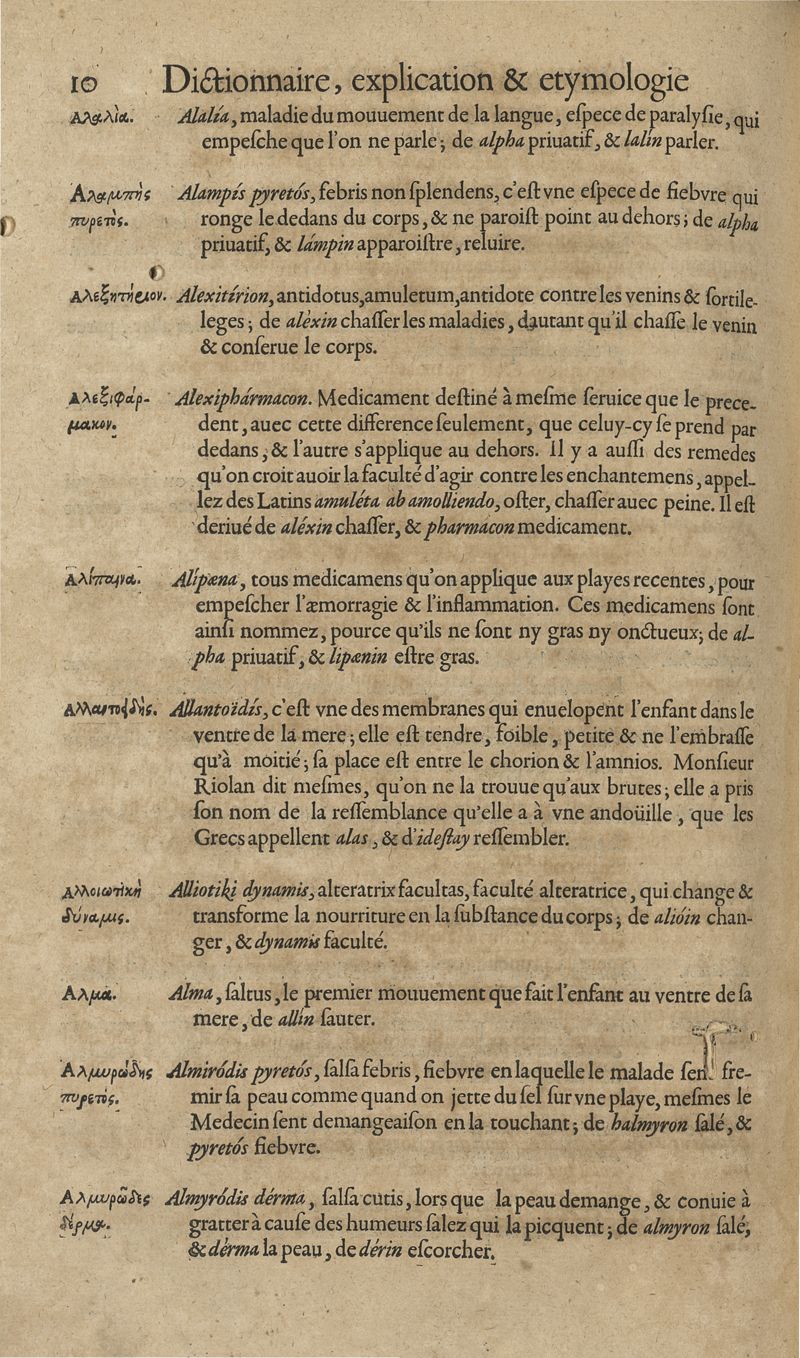 10 Dictionnaire, explication & etymologie
Αλαλία. Alalía, maladie du mouuement de la langue, eſpece de paralyſie, qui
empeſche que l'on ne parle; de alpha priuatif, & lalin parler.
Αλαμπὴς Alampís pyretós, febris non ſplendens, c'eſt vne eſpece de fiebvre qui
πυρετὸς. ronge le dedans du corps, & ne paroiſt point au dehors; de alpha
priuatif, & lámpin apparoiſtre, reluire.
Αλεξητήριον. Alexitírion, antidotus, amuletum, antidote contre les venins & ſortile-
leges; de aléxin chaſſer les maladies, dautant qu'il chaſſe le venin
& conſerue le corps.
Αλεξιφάρ- Alexiphármacon. Medicament deſtiné à meſme ſeruice que le prece-
μακον. dent, auec cette difference ſeulement, que celuy-cy ſe prend par
dedans, & l'autre s'applique au dehors. Il y a auſſi des remedes
qu'on croit auoir la faculté d'agir contre les enchantemens, appel-
lez des Latins amuléta ab amolliendo, oſter, chaſſer auec peine. Il eſt
deriué de aléxin chaſſer, & pharmacon medicament.
Αλίπαινα. Alípæna, tous medicamens qu'on applique aux playes recentes, pour
empeſcher l'æmorragie & l'inflammation. Ces medicamens ſont
ainſi nommez, pource qu'ils ne ſont ny gras ny onctueux; de al-
pha priuatif, & lipænin eſtre gras.
Αλλαντοιδὴς. Allantoïdís, c'eſt vne des membranes qui enuelopent l'enfant dans le
ventre de la mere; elle eſt tendre, foible, petite & ne l'embraſſe
qu'à moitié; ſa place eſt entre le chorion & l'amnios. Monſieur
Riolan dit meſmes, qu'on ne la trouue qu'aux brutes; elle a pris
ſon nom de la reſſemblance qu'elle a à vne andoüille, que les
Grecs appellent alas, & d'ideſtay reſſembler.
Αλλοιωτικὴ Alliotikí dynamis, alteratrix facultas, faculté alteratrice, qui change &
δύναμις. transforme la nourriture en la ſubſtance du corps; de alióin chan-
ger, & dynamis faculté.
Αλμα. Alma, ſaltus, le premier mouuement que fait l'enfant au ventre de ſa
mere, de allin ſauter.
Αλμυρώδης Almiródis pyretós, ſalſa febris, fiebvre en laquelle le malade ſent fre-
πυρετὸς. mir ſa peau comme quand on jette du ſel ſur vne playe, meſmes le
Medecin ſent demangeaiſon en la touchant; de halmyron ſalé, &
pyretós fiebvre.
Αλμυρῶδες Almyródis dérma, ſalſa cutis, lors que la peau demange, & conuie à
δέρμα. gratter à cauſe des humeurs ſalez qui la picquent; de almyron ſalé,
& dérma la peau, de dérin eſcorcher.